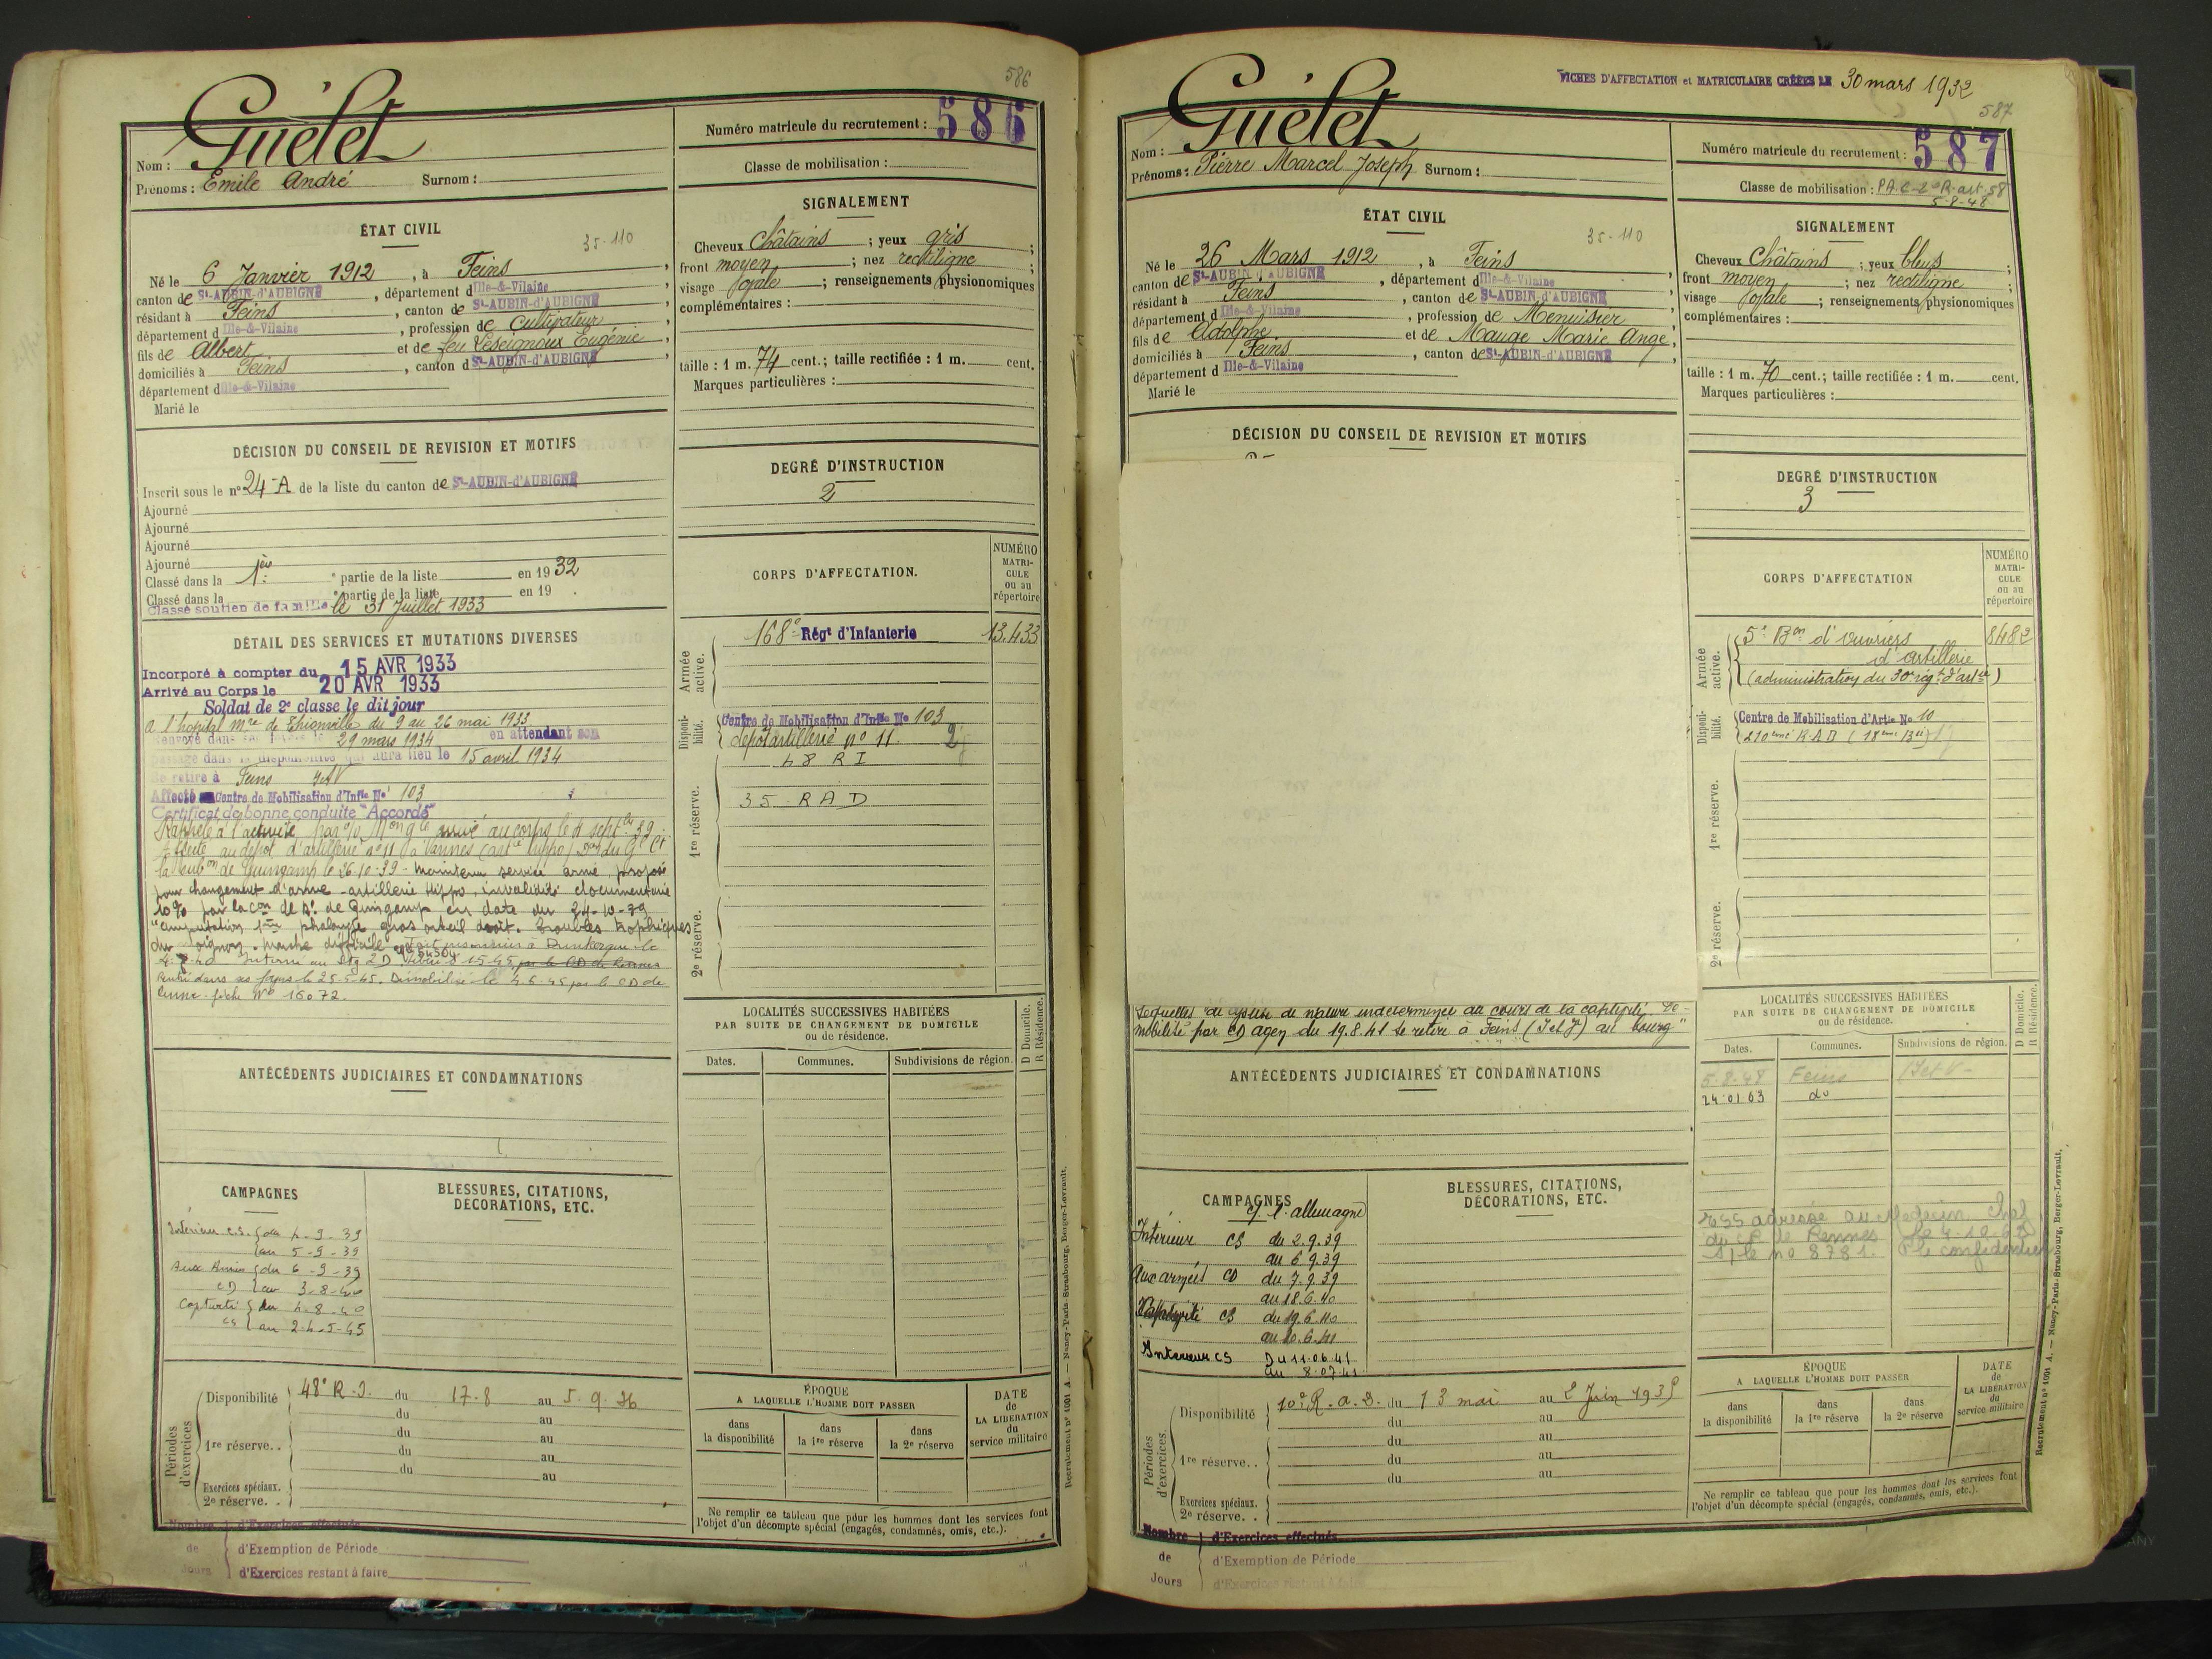 586
Guelet
Nom :
Prénoms : Emile André Surnom :
Numéro matricule du recrutement : 586
Classe de mobilisation :
ÉTAT CIVIL
35-110
Né le 6 Janvier 1912, à Feins,
canton de St-AUBIN-d'AUBIGNÉ, département d Ille-&-Vilaine,
résidant à Feins, canton de St-AUBIN-d'AUBIGNÉ,
département d Ille-&-Vilaine, profession de Cultivateur,
fils de Albert et de feu Leseignoux Eugénie,
domiciliés à Feins, canton d St-AUBIN-d'AUBIGNÉ,
département d Ille-&-Vilaine
Marié le
SIGNALEMENT
Cheveux Châtains ; yeux gris ;
front moyen ; nez rectiligne ;
visage ovale ; renseignements physionomiques
complémentaires :
taille : 1 m. 74 cent.; taille rectifiée : 1 m. cent.
Marques particulières :
DÉCISION DU CONSEIL DE REVISION ET MOTIFS
Inscrit sous le n° 24-A de la liste du canton de St-AUBIN-d'AUBIGNÉ
Ajourné
Ajourné
Ajourné
Ajourné
Classé dans la 1ère partie de la liste en 1932
Classé dans la ° partie de la liste en 19 .
Classé soutien de famille le 31 Juillet 1933
DEGRÉ D'INSTRUCTION
2
DÉTAIL DES SERVICES ET MUTATIONS DIVERSES
Incorporé à compter du 15 AVR 1933
Arrivé au Corps le 20 AVR 1933
Soldat de 2e classe le dit jour
A l'hopital mre de Thionville du 9 au 26 mai 1933
Renvoyé dans ses foyers le 29 mars 1934 en attendant son
passage dans la disponibilité qui aura lieu le 15 avril 1934
Se retire à Feins I et V
Affecté Centre de Mobilisation d'Infie No 103
Certificat de bonne conduite "Accordé"
Rappelé à l'activité arrivé au corps le 4 septbre 39
Affecté au dépôt d'artillerie n° 11 à Vannes
de Guingamp le 26.10.39 - Maintenu service armé, proposé
pour changement d'arme - artillerie hippo, invalidité documentaire
10% par la Con de de Guingamp en date du 24-10-39
"amputation 1ère phalange gros orteil droit. Troubles trophiques
du moignon. marche difficile Fait prisonnier à Dunkerque le
Interné au Stg 2D
Rentré dans ses foyers le 25-5-45. Démobilisé le 4.6.45 par le CD de
fiche No 16072.
CORPS D'AFFECTATION.
NUMÉRO MATRICULE ou au répertoire
Armée active.
168e Régt d'Infanterie 13.433
Disponibilité.
Centre de Mobilisation d'Infie No 103
dépôt artillerie n° 11
48 RI
1re réserve.
35 RAD
2e réserve.
LOCALITÉS SUCCESSIVES HABITÉES
PAR SUITE DE CHANGEMENT DE DOMICILE
ou de résidence.
D Domicile. R Résidence.
Dates. Communes. Subdivisions de région.
ANTÉCÉDENTS JUDICIAIRES ET CONDAMNATIONS
CAMPAGNES
Intérieur C.S. du 4-9-39
au 5-9-39
Aux Armées du 6-9-39
CD au 3-8-40
Captivité du 4-8-40
CS au 24-5-45
BLESSURES, CITATIONS,
DÉCORATIONS, ETC.
Périodes d'exercices
Disponibilité 48e R.I. du 17-8 au 5.9.36
du au
1re réserve. . du au
du au
du au
Exercices spéciaux.
2e réserve. .
ÉPOQUE
A LAQUELLE L'HOMME DOIT PASSER
dans la disponibilité dans la 1re réserve dans la 2e réserve
DATE de LA LIBÉRATION du service militaire
Ne remplir ce tableau que pour les hommes dont les services font
l'objet d'un décompte spécial (engagés, condamnés, omis, etc.).
Nombre de Jours
d'Exercices effectués
d'Exemption de Période
d'Exercices restant à faire
Recrutement n° 1001 A. — Nancy-Paris-Strasbourg, Berger-Levrault.
FICHES D'AFFECTATION et MATRICULAIRE CRÉÉES LE 30 mars 1932
587
Guelet
Nom :
Prénoms : Pierre Marcel Joseph Surnom :
Numéro matricule du recrutement : 587
Classe de mobilisation : P.A.C-2e R-art. 58
5-8-48
ÉTAT CIVIL
35-110
Né le 26 Mars 1912, à Feins,
canton de St-AUBIN-d'AUBIGNÉ, département d Ille-&-Vilaine,
résidant à Feins, canton de St-AUBIN-d'AUBIGNÉ,
département d Ille-&-Vilaine, profession de Menuisier,
fils de Adolphe et de Mauge Marie Ange,
domiciliés à Feins, canton de St-AUBIN-d'AUBIGNÉ,
département d Ille-&-Vilaine
Marié le
SIGNALEMENT
Cheveux Châtains ; yeux bleus ;
front moyen ; nez rectiligne ;
visage ovale ; renseignements physionomiques
complémentaires :
taille : 1 m. 70 cent.; taille rectifiée : 1 m. cent.
Marques particulières :
DÉCISION DU CONSEIL DE REVISION ET MOTIFS
DEGRÉ D'INSTRUCTION
3
CORPS D'AFFECTATION
NUMÉRO MATRICULE ou au répertoire
Armée active.
5e Bon d'ouvriers 8482
d'artillerie
(administration du 30e régt d'artie)
Disponibilité.
Centre de Mobilisation d'Artie No 10
210ème R.A.D (18ème Bie)
1re réserve.
2e réserve.
Séquelles de de nature indéterminée au cours de la captivité. Dé-
mobilisé par CD agen du 19.8.41 se retire à Feins (I et V) au bourg"
ANTÉCÉDENTS JUDICIAIRES ET CONDAMNATIONS
LOCALITÉS SUCCESSIVES HABITÉES
PAR SUITE DE CHANGEMENT DE DOMICILE
ou de résidence.
D Domicile. R Résidence.
Dates. Communes. Subdivisions de région.
5-8-48 Feins I et V-
24.01.63 do
adressé au Médecin Chef
du CR de Rennes
no 8781.
CAMPAGNES
c/ l'allemagne
Intérieur CS du 2.9.39
au 6.9.39
Aux armées CD du 7.9.39
au 18.6.40
Captivité CS du 19.6.40
au 10.6.41
Intérieur CS Du 11.06.41
au 8.07.41
BLESSURES, CITATIONS,
DÉCORATIONS, ETC.
Périodes d'exercices.
Disponibilité 10e R.a.D. du 13 mai au 2 Juin 193
du au
du au
1re réserve. . du au
du au
Exercices spéciaux.
2e réserve. .
ÉPOQUE
A LAQUELLE L'HOMME DOIT PASSER
dans la disponibilité dans la 1re réserve dans la 2e réserve
DATE de LA LIBÉRATION du service militaire
Ne remplir ce tableau que pour les hommes dont les services font
l'objet d'un décompte spécial (engagés, condamnés, omis, etc.).
Nombre de Jours
d'Exercices effectués
d'Exemption de Période
d'Exercices restant à faire
Recrutement n° 1001 A. — Nancy-Paris-Strasbourg, Berger-Levrault.